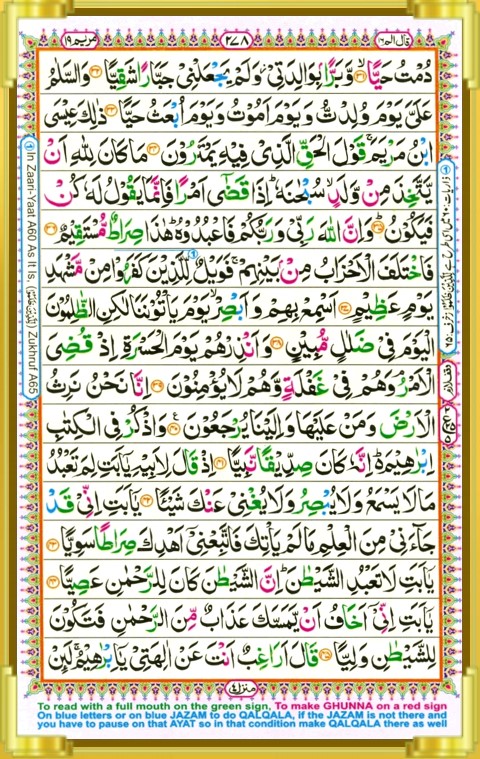 قال الم ١٦
٢٧٨
مريم ١٩
دُمْتُ حَيًّا ۝٣١ وَّبَرًّۢا بِوَالِدَتِيْ ؗ وَلَمْ يَجْعَلْنِيْ جَبَّارًا شَقِيًّا ۝٣٢ وَالسَّلٰمُ
عَلَيَّ يَوْمَ وُلِدْتُّ وَيَوْمَ اَمُوْتُ وَيَوْمَ اُبْعَثُ حَيًّا ۝٣٣ ذٰلِكَ عِيْسَى
ابْنُ مَرْيَمَ ۚ قَوْلَ الْحَقِّ الَّذِيْ فِيْهِ يَمْتَرُوْنَ ۝٣٤ مَا كَانَ لِلّٰهِ اَنْ
يَّتَّخِذَ مِنْ وَّلَدٍ ۙ سُبْحٰنَهٗ ؕ اِذَا قَضٰۤى اَمْرًا فَاِنَّمَا يَقُوْلُ لَهٗ كُنْ
فَيَكُوْنُ ۝٣٥ وَاِنَّ اللّٰهَ رَبِّيْ وَرَبُّكُمْ فَاعْبُدُوْهُ ؕ هٰذَا صِرَاطٌ مُّسْتَقِيْمٌ ۝٣٦
فَاخْتَلَفَ الْاَحْزَابُ مِنْۢ بَيْنِهِمْ ۚ فَوَيْلٌ لِّلَّذِيْنَ كَفَرُوْا مِنْ مَّشْهَدِ
يَوْمٍ عَظِيْمٍ ۝٣٧ اَسْمِعْ بِهِمْ وَاَبْصِرْ ۙ يَوْمَ يَاْتُوْنَنَا لٰكِنِ الظّٰلِمُوْنَ
الْيَوْمَ فِيْ ضَلٰلٍ مُّبِيْنٍ ۝٣٨ وَاَنْذِرْهُمْ يَوْمَ الْحَسْرَةِ اِذْ قُضِيَ
الْاَمْرُ ۘ وَهُمْ فِيْ غَفْلَةٍ وَّهُمْ لَا يُؤْمِنُوْنَ ۝٣٩ اِنَّا نَحْنُ نَرِثُ
الْاَرْضَ وَمَنْ عَلَيْهَا وَاِلَيْنَا يُرْجَعُوْنَ ۝٤٠ وَاذْكُرْ فِي الْكِتٰبِ
اِبْرٰهِيْمَ ؕ اِنَّهٗ كَانَ صِدِّيْقًا نَّبِيًّا ۝٤١ اِذْ قَالَ لِاَبِيْهِ يٰۤاَبَتِ لِمَ تَعْبُدُ
مَا لَا يَسْمَعُ وَلَا يُبْصِرُ وَلَا يُغْنِيْ عَنْكَ شَيْـًٔا ۝٤٢ يٰۤاَبَتِ اِنِّيْ قَدْ
جَآءَنِيْ مِنَ الْعِلْمِ مَا لَمْ يَاْتِكَ فَاتَّبِعْنِيْۤ اَهْدِكَ صِرَاطًا سَوِيًّا ۝٤٣
يٰۤاَبَتِ لَا تَعْبُدِ الشَّيْطٰنَ ؕ اِنَّ الشَّيْطٰنَ كَانَ لِلرَّحْمٰنِ عَصِيًّا ۝٤٤
يٰۤاَبَتِ اِنِّيْۤ اَخَافُ اَنْ يَّمَسَّكَ عَذَابٌ مِّنَ الرَّحْمٰنِ فَتَكُوْنَ
لِلشَّيْطٰنِ وَلِيًّا ۝٤٥ قَالَ اَرَاغِبٌ اَنْتَ عَنْ اٰلِهَتِيْ يٰۤاِبْرٰهِيْمُ ۚ لَئِنْ
منزل ٤
In Zaari-Yaat A60 As It Is. Zukhruf A65
To read with a full mouth on the green sign, To make GHUNNA on a red sign
On blue letters or on blue JAZAM to do QALQALA, if the JAZAM is not there and
you have to pause on that AYAT so in that condition make QALQALA there as well